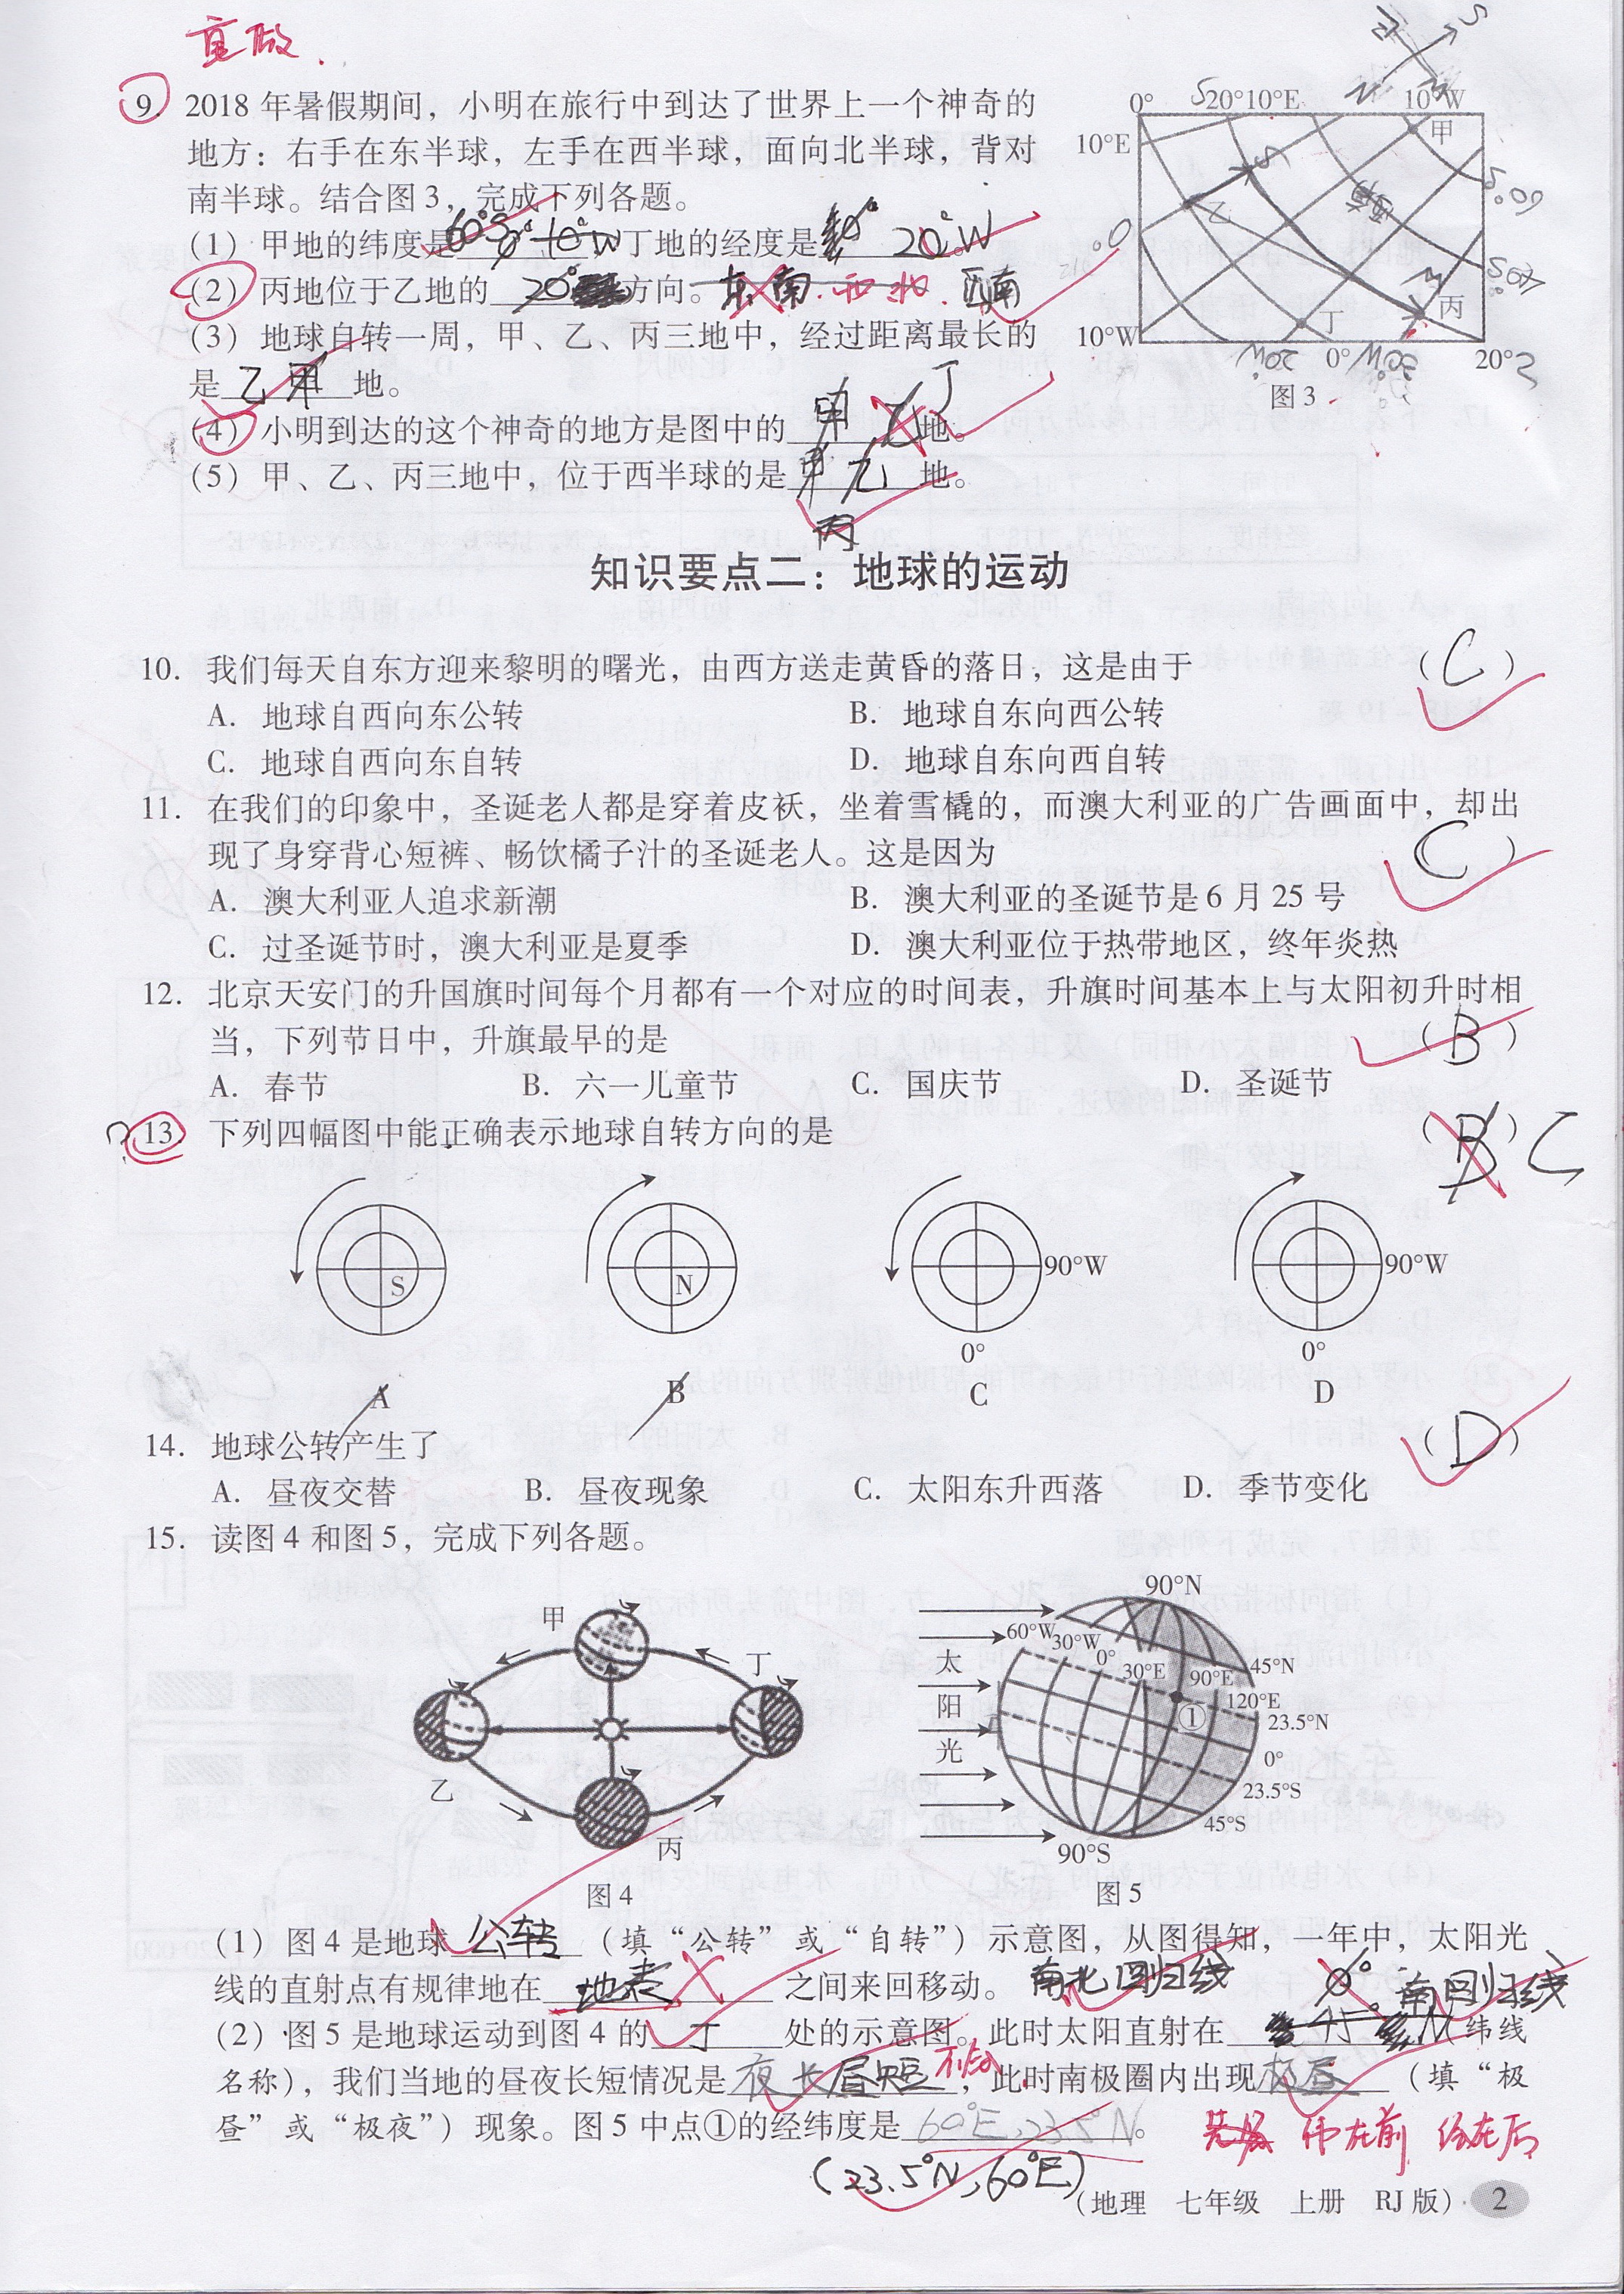 重做.
9. 2018年暑假期间，小明在旅行中到达了世界上一个神奇的
地方：右手在东半球，左手在西半球，面向北半球，背对
南半球。结合图3，完成下列各题。
（1）甲地的纬度是 60°S 0° 10°W 丁地的经度是 20°W
（2）丙地位于乙地的 20° 方向。东南.西北.西南
（3）地球自转一周，甲、乙、丙三地中，经过距离最长的
是 乙 甲 地。
（4）小明到达的这个神奇的地方是图中的 甲 乙 丁 地。
（5）甲、乙、丙三地中，位于西半球的是 甲 乙 地。
丙
S
N
0° 20°10°E 10°W
10°E
甲
乙
60°S
0°
40°S
丙
丁
10°W
20°W 0° 20°
图3
知识要点二：地球的运动
10. 我们每天自东方迎来黎明的曙光，由西方送走黄昏的落日，这是由于 （C）
A. 地球自西向东公转 B. 地球自东向西公转
C. 地球自西向东自转 D. 地球自东向西自转
11. 在我们的印象中，圣诞老人都是穿着皮袄，坐着雪橇的，而澳大利亚的广告画面中，却出
现了身穿背心短裤、畅饮橘子汁的圣诞老人。这是因为 （C）
A. 澳大利亚人追求新潮 B. 澳大利亚的圣诞节是6月25号
C. 过圣诞节时，澳大利亚是夏季 D. 澳大利亚位于热带地区，终年炎热
12. 北京天安门的升国旗时间每个月都有一个对应的时间表，升旗时间基本上与太阳初升时相
当，下列节日中，升旗最早的是 （B）
A. 春节 B. 六一儿童节 C. 国庆节 D. 圣诞节
? 13. 下列四幅图中能正确表示地球自转方向的是 （B）C
S N 90°W 90°W
0° 0°
A B C D
14. 地球公转产生了 （D）
A. 昼夜交替 B. 昼夜现象 C. 太阳东升西落 D. 季节变化
15. 读图4和图5，完成下列各题。
甲
丁
乙
丙
图4
90°N
60°W 30°W 0° 30°E 90°E 120°E
太
阳
光
①
45°N
23.5°N
0°
23.5°S
45°S
90°S
图5
（1）图4是地球 公转 （填“公转”或“自转”）示意图，从图得知，一年中，太阳光
线的直射点有规律地在 地表 之间来回移动。南北回归线 0° 南回归线
（2）图5是地球运动到图4的 丁 处的示意图。此时太阳直射在 45° N （纬线
名称），我们当地的昼夜长短情况是 夜长昼短 ，此时南极圈内出现 极昼 （填“极
昼”或“极夜”）现象。图5中点①的经纬度是 60°E,23.5°N 。
纬在前 经在后
(23.5°N,60°E)
（地理 七年级 上册 RJ版） 2